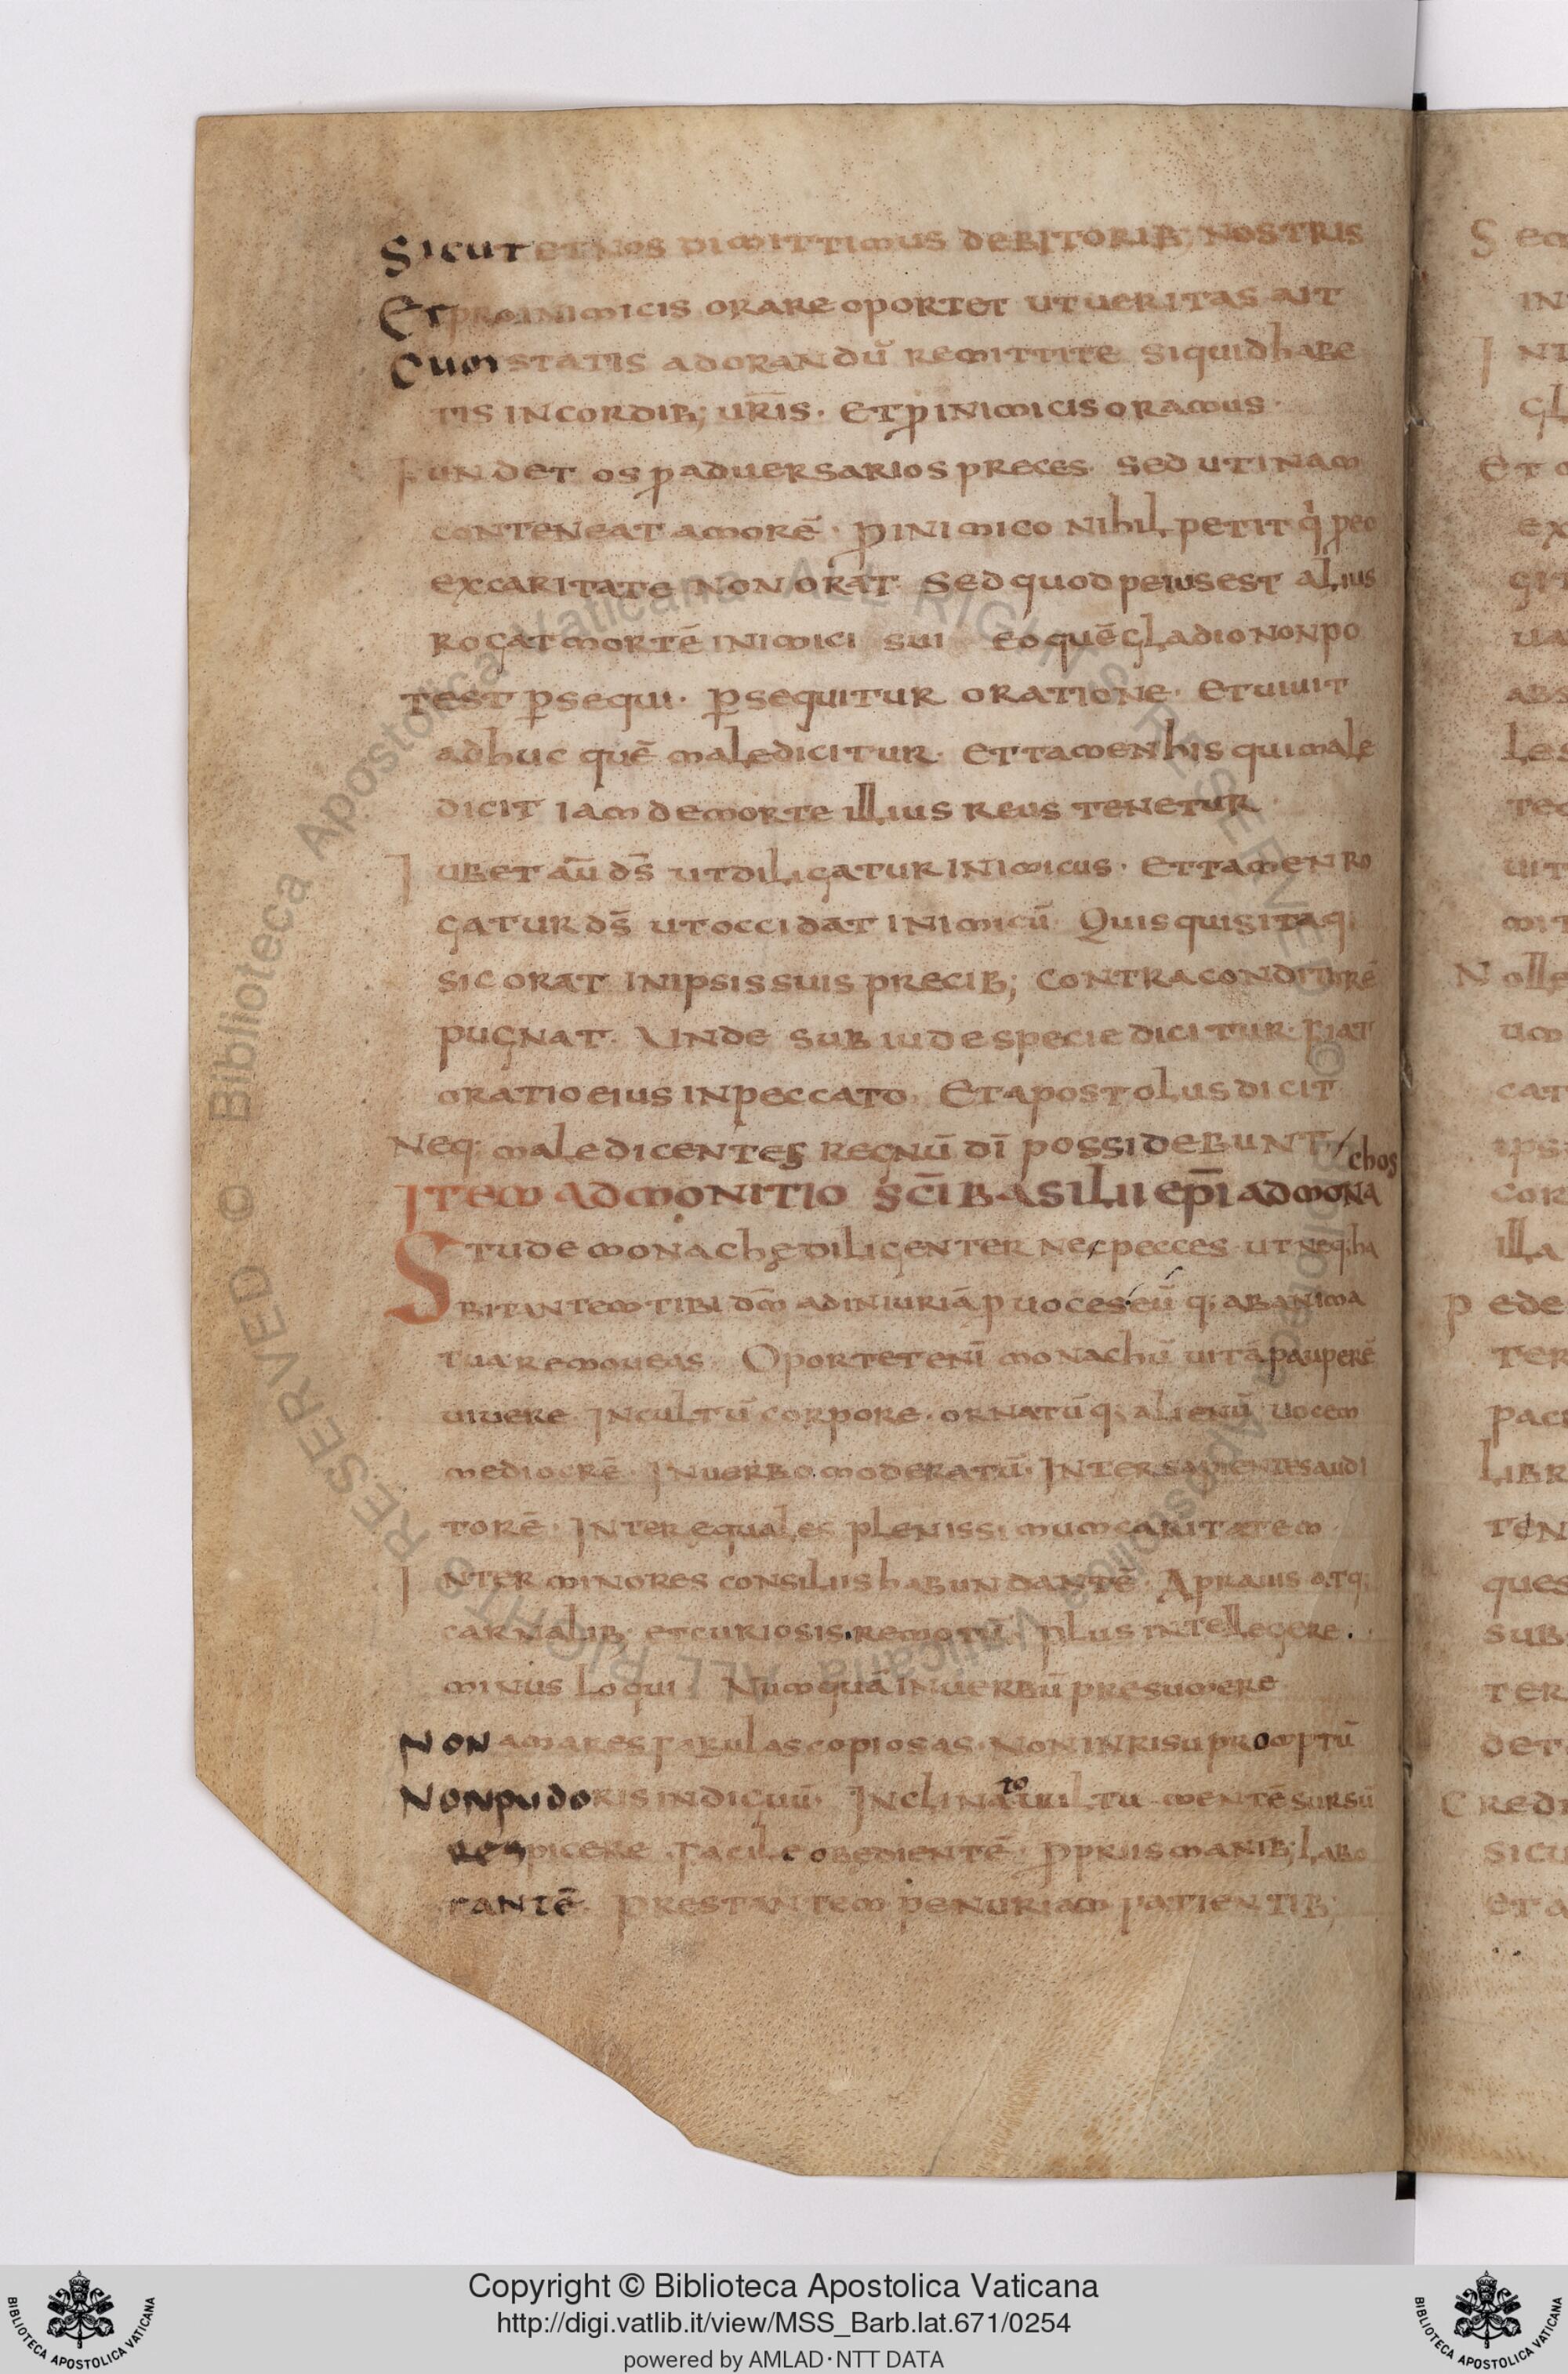 Sicut et nos dimittimus debitorib; nostris
Et pro inimicis orare oportet ut ueritas ait
Cum statis ad orandū remittite siquid habe
tis in cordib; ur̄is · Et ꝓ inimicis oramus ·
Fundet os ꝓ aduersarios preces · sed utinam
conteneat amorē · ꝓ inimico nihil petit q̇ ꝓ eo
ex caritate non orat · Sed quod peius est alius
rogat mortē inimici sui eo quē gladio non po
test ꝑsequi · ꝑsequitur oratione · Et uiuit
adhuc quē maledicitur · et tamen his qui male
dicit iam de morte illius reus tenetur ·
Iubet aū ds̄ ut diligatur inimicus · Et tamen ro
gatur ds̄ ut occidat inimicū · Quisquis itaq;
sic orat in ipsis suis precib; contra conditorē
pugnat · Unde sub iude specie dicitur · Fiat
oratio eius in peccato · Et apostolus dicit
Neq; maledicentes regnū dī possidebunt
chos
Item admonitio sc̄i Basilii ep̄i ad mona
Stude monache diligenter nec pecces · ut neq; ha
bitantem tibi dm̄ ad iniuriā ꝓuoces eū q; ab anima
tua remoueas · Oportet enī monachū uitā pauperē
uiuere · Incultū corpore · ornatūq; alienū · uocem
mediocrē · In uerbo moderatū · Inter sapientes audi
torē · Inter equales plenissimum caritatem ·
Inter minores consiliis habundantē · A prauis atq;
carnalib; et curiosis remotū · Plus intellegere ·
minus loqui · Numquā in uerbū presumere
Non amares fabulas copiosas · Non in risu promptū
Non pudoris indiguū · Inclinato uultu mentē sursū
respicere · Facile obedientē · ꝓpriis manib; labo
rantē · Prestantem penuriam patientib;
Copyright © Biblioteca Apostolica Vaticana
http://digi.vatlib.it/view/MSS_Barb.lat.671/0254
powered by AMLAD·NTT DATA